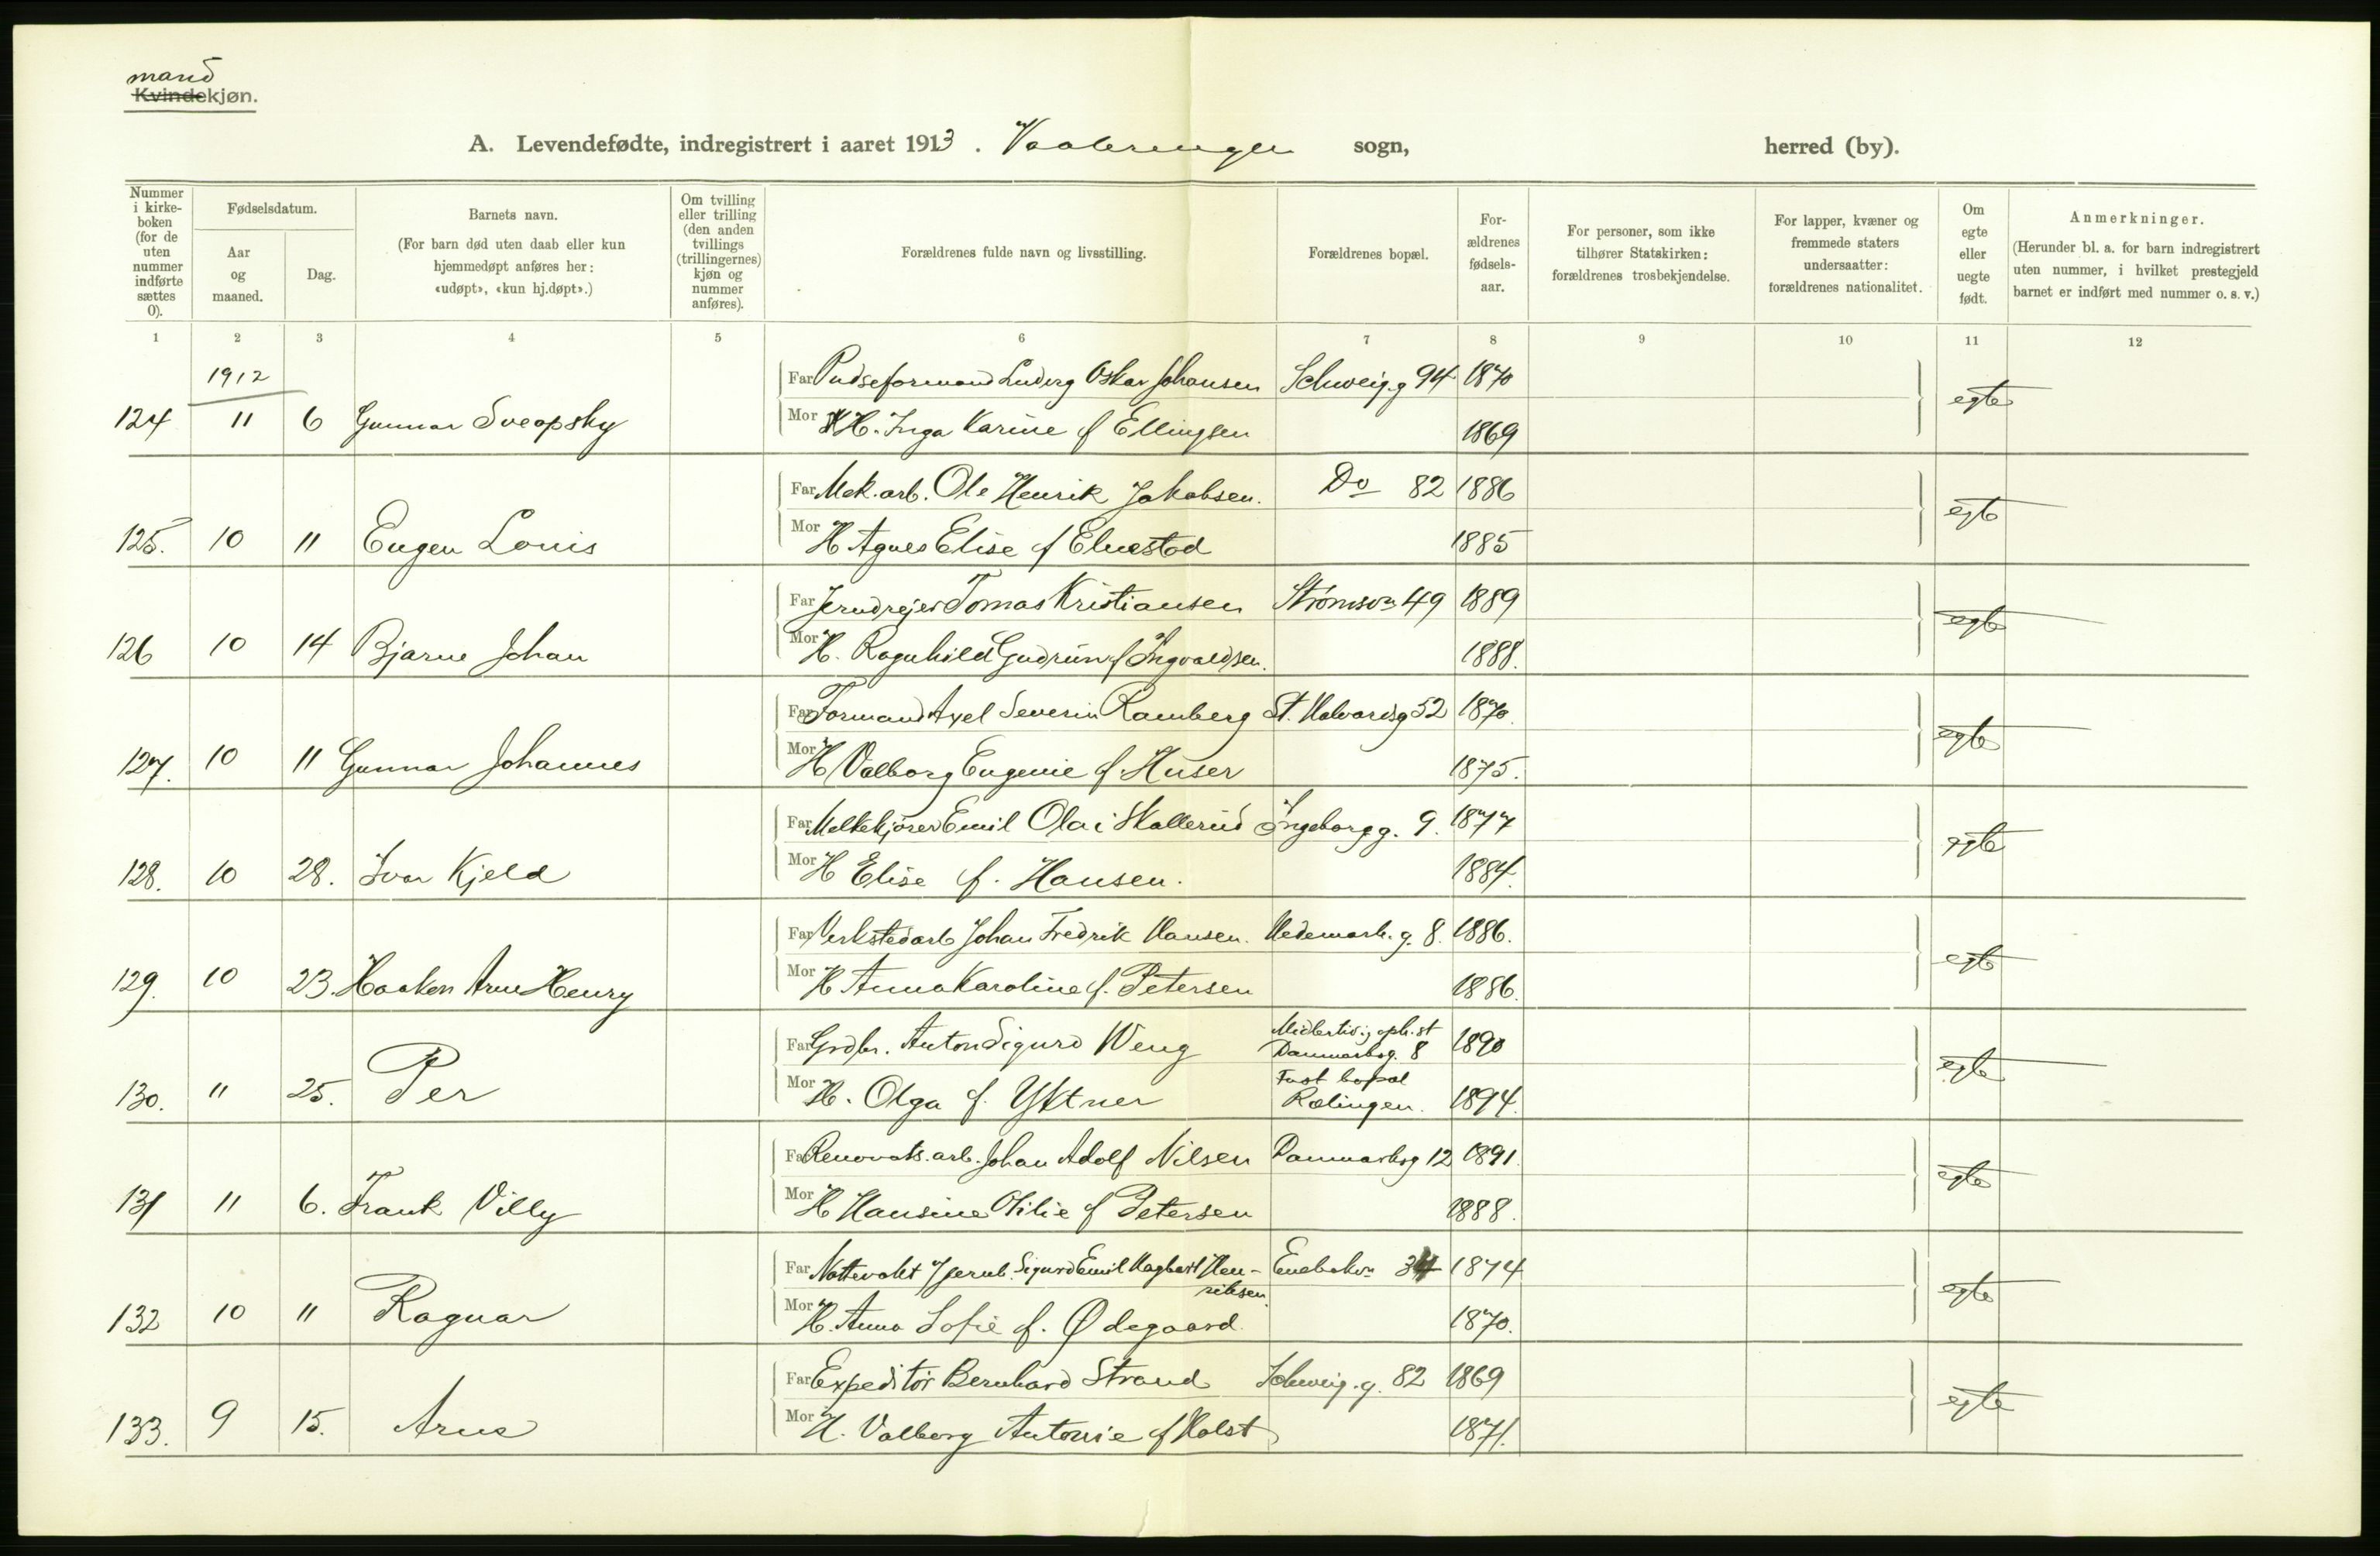 mand
Kvindekjøn.
A. Levendefødte, indregistrert i aaret 1913. Vaalerengen sogn, herred (by).
Nummer i kirke-boken (for de uten nummer indførte sættes 0).
Fødselsdatum.
Aar og maaned.
Dag.
Barnets navn.
(For barn død uten daab eller kun hjemmedøpt anføres her: «udøpt», «kun hj.døpt».)
Om tvilling eller trilling (den anden tvillings (trillingernes) kjøn og nummer anføres).
Forældrenes fulde navn og livsstilling.
Forældrenes bopæl.
For-ældrenes fødsels-aar.
For personer, som ikke tilhører Statskirken: forældrenes trosbekjendelse.
For lapper, kvæner og fremmede staters undersaatter: forældrenes nationalitet.
Om egte eller uegte født.
Anmerkninger.
(Herunder bl. a. for barn indregistrert uten nummer, i hvilket prestegjeld barnet er indført med nummer o. s. v.)
1 2 3 4 5 6 7 8 9 10 11 12
1912
Far Pudseformand Ludvig Oskar Johansen Schweig.g 94 1870
124 11 6 Gunnar Mor H. Inga Karine f Ellingsen 1869 egte
Far Mek. arb. Ole Henrik Jakobsen. Do 82 1886
125. 10 11 Eugen Louis Mor H Agnes Elise f Elvestad 1885 egte
Far Jerndrejer Tomas Kristiansen Strømsvn 49 1889
126 10 14 Bjarne Johan Mor H. Ragnhild Gudrun f Ingvaldsen. 1888. egte
Far Formand Axel Severin Ramberg St. Halvardsg 52 1870.
127. 10 11 Gunnar Johannes Mor H Valborg Eugenie f. Huser 1875. egte
Far Melkekjører Emil Olai Skallerud Ingeborgg. 9. 1877
128. 10 28. Ivar Kjeld Mor H Elise f. Hansen. 1884. egte
Far Verkstedarb Johan Fredrik Hansen. Hedemark. g. 8. 1886.
129. 10 23. Haakon Arne Henry Mor H Anna Karoline f. Petersen 1886. egte
Far Grdbr. Anton Sigurd Weng Midlertidig oph.st Danmarksg. 8 1890
130. 11 25. Per Mor H. Olga f. Yttner Fast bopæl Rælingen. 1894. egte
Far Renovats. arb. Johan Adolf Nilsen Danmarksg 12 1891.
131 11 6. Frank Villy Mor H Hansine Otilie f Petersen 1888. egte
Far Nattevakt v/Jernb. Sigurd Emil Hagbart Hen-riksen. Enebakvn 34 1874
132 10 11 Ragnar Mor H. Anna Sofie f. Ødegaard. 1870. egte
Far Expeditør Bernhard Strand Schweig. g. 82 1869
133. 9 15. Arne Mor H. Valborg Antonie f Holst 1871. egte